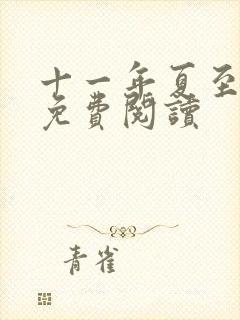 十一年夏至
免費閱讀
青雀